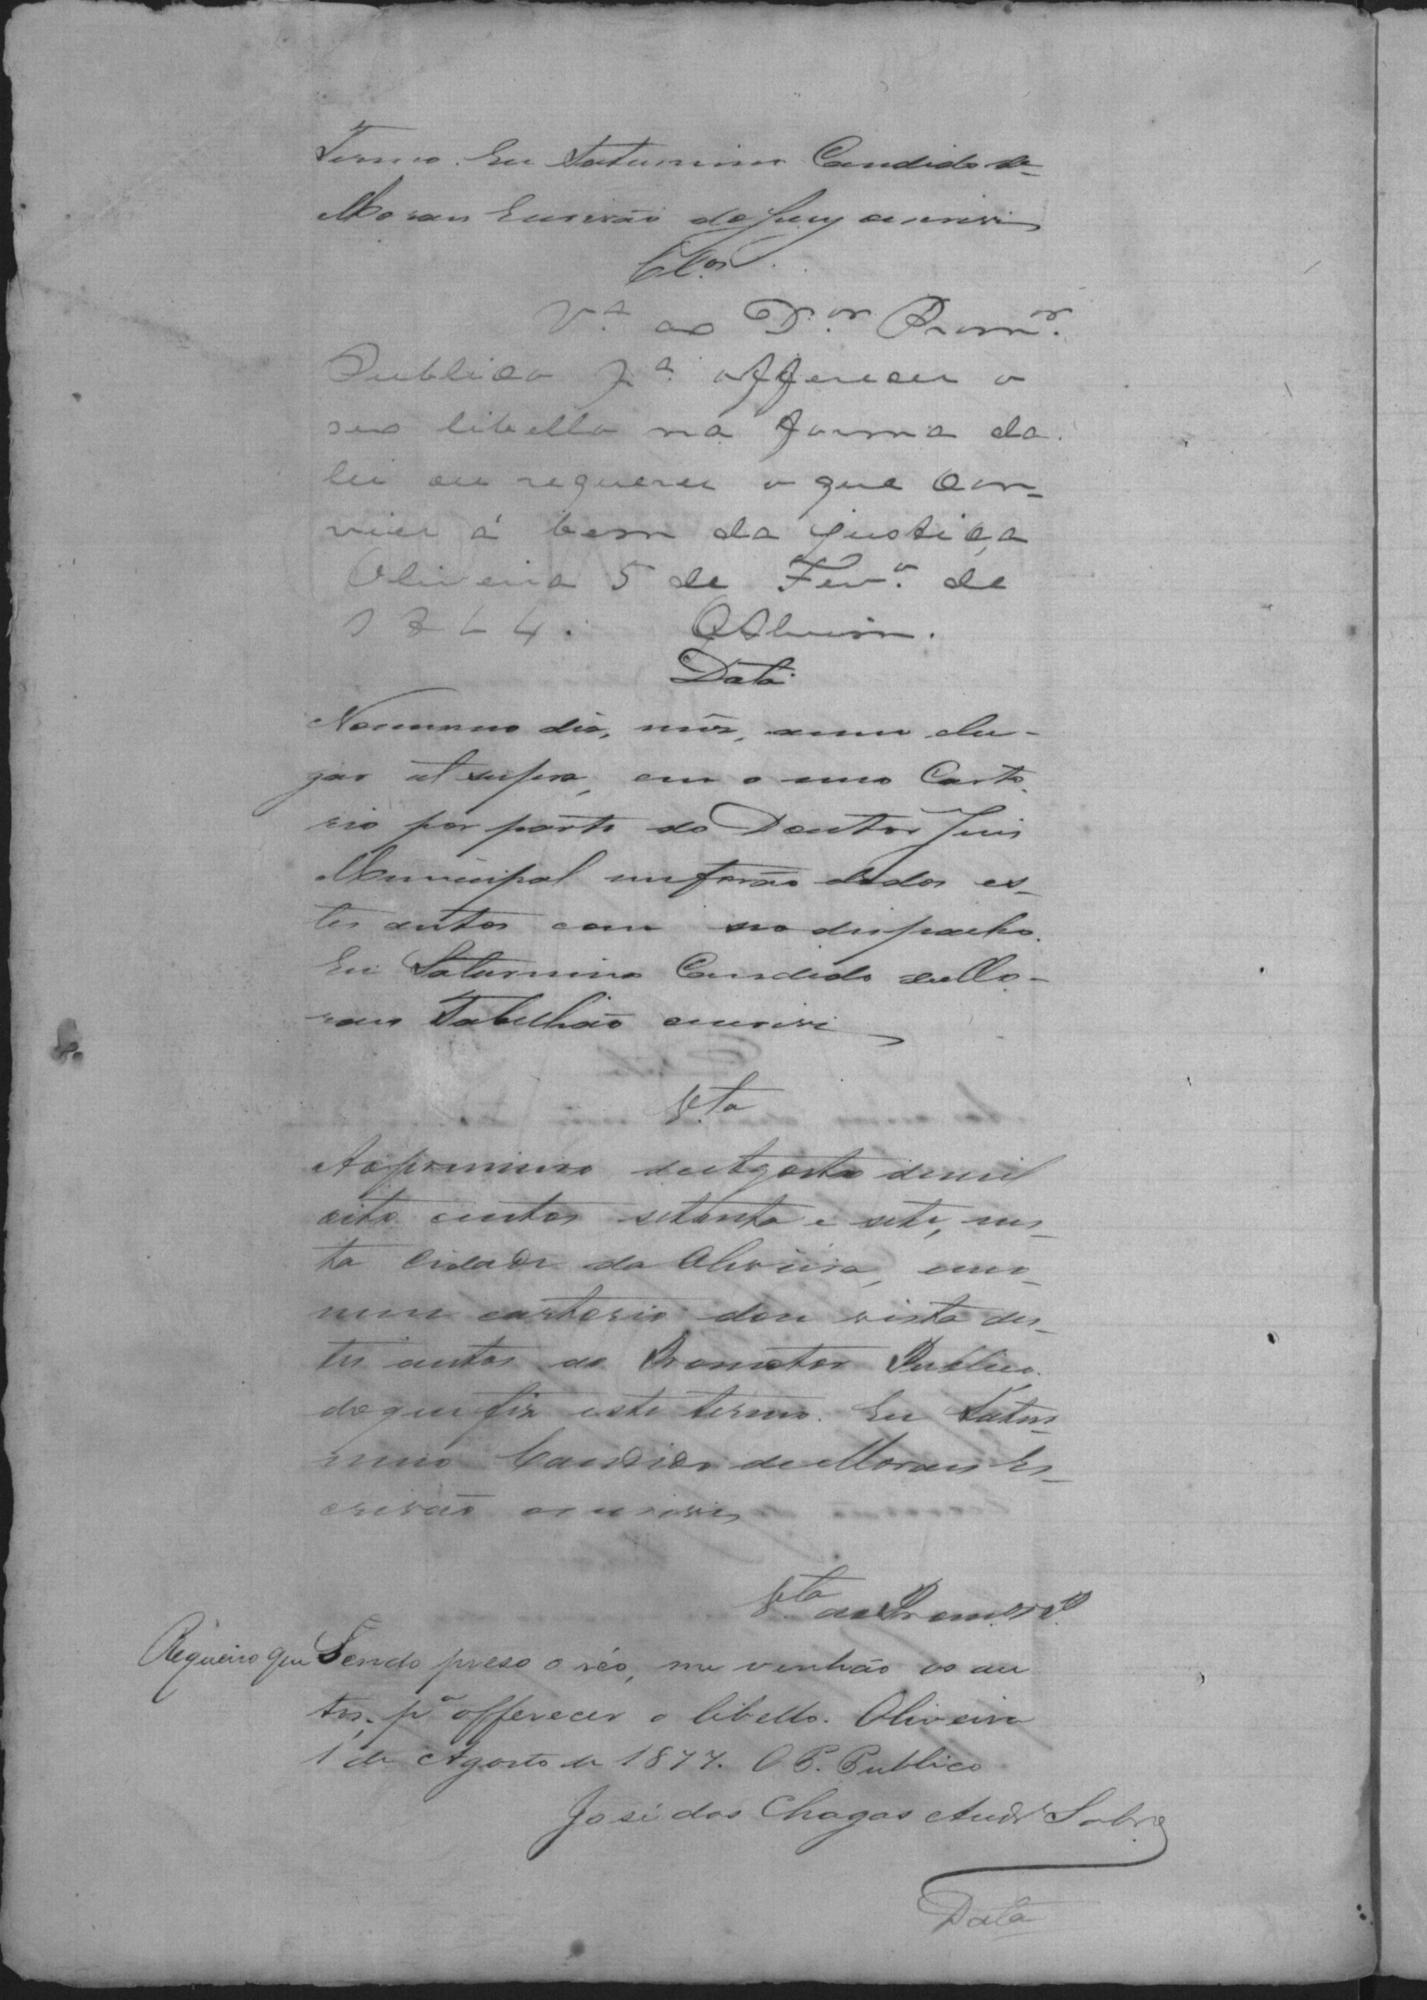 Termo. Eu Saturnino Candido de
Moraes Escrivão do Jury o escrivi
Cl.os
V.ta ao D.or Prom.or
Publico p.a offerecer o
seo libello na forma da
lei ou requerer o que con-
vier á bem da justiça
Oliveira 5 de Fev.o de
Data
No mesmo dia, mês, anno e lu-
gar ut supra, em o meo Carto-
rio por parte do Doutor Juis
Municipal me forão dados es-
tes autos com seo dispacho.
Eu Saturnino Candido de Mo-
raes Tabelhão o escrivi
V.ta
Ao primeiro de Agosto de mil
oito centos setenta e sete, nes-
ta Cidade da Oliveira, em o
meu cartorio dou vista des-
tes autos ao Promotor Publico
do que fiz este termo. Eu Satur-
nino Candido de Moraes Es-
crivão o escrivi
V.ta ao Prom.or P.
Requeiro que Sendo preso o réo, me venhão os au
tos, p.a offerecer o libello. Oliveira
1 de Agosto de 1877. O P. Publico
José das Chagas Andr.e Sobr.o
Data